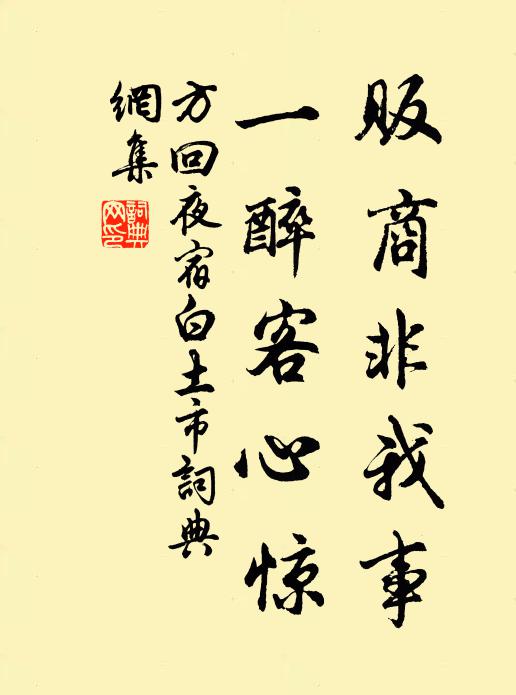 販商非我事
一醉客心惊
方回夜宿白土市詞典
網集
詞典
网印